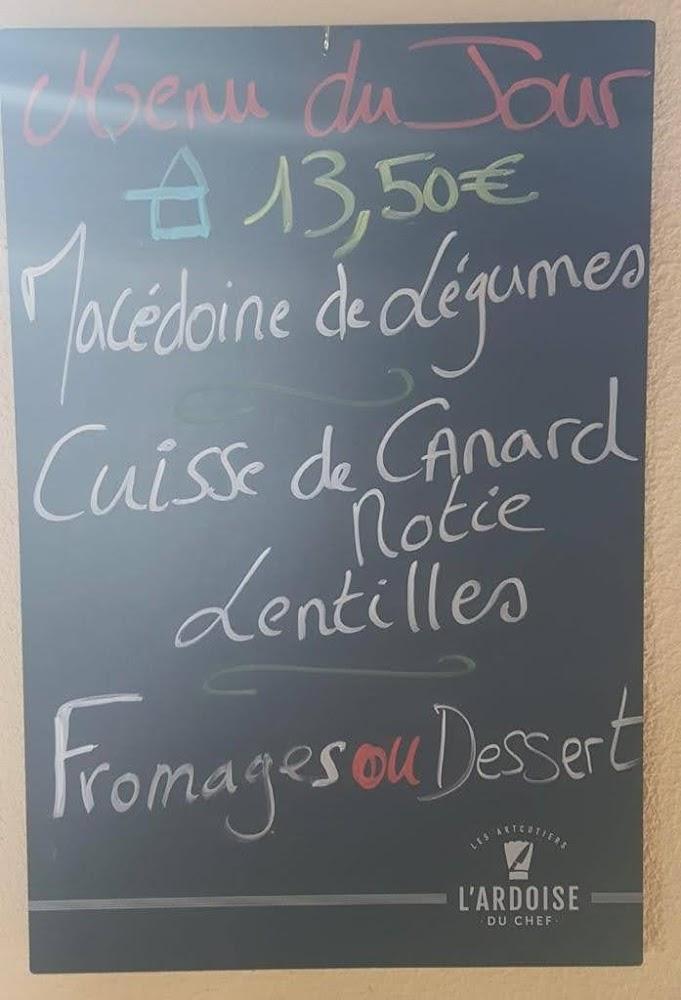 Menu du Jour
à 13,50€
Macédoine de Légumes
Cuisse de Canard
Rotie
Lentilles
Fromages ou Dessert
LES ARTCUTIERS
L'ARDOISE
DU CHEF